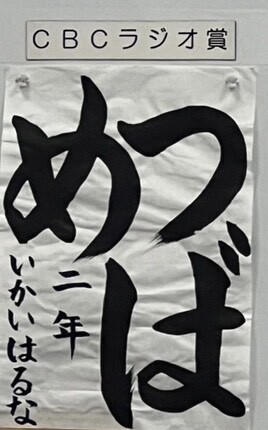 CBCラジオ賞
つば
め
二年
いかいはるな